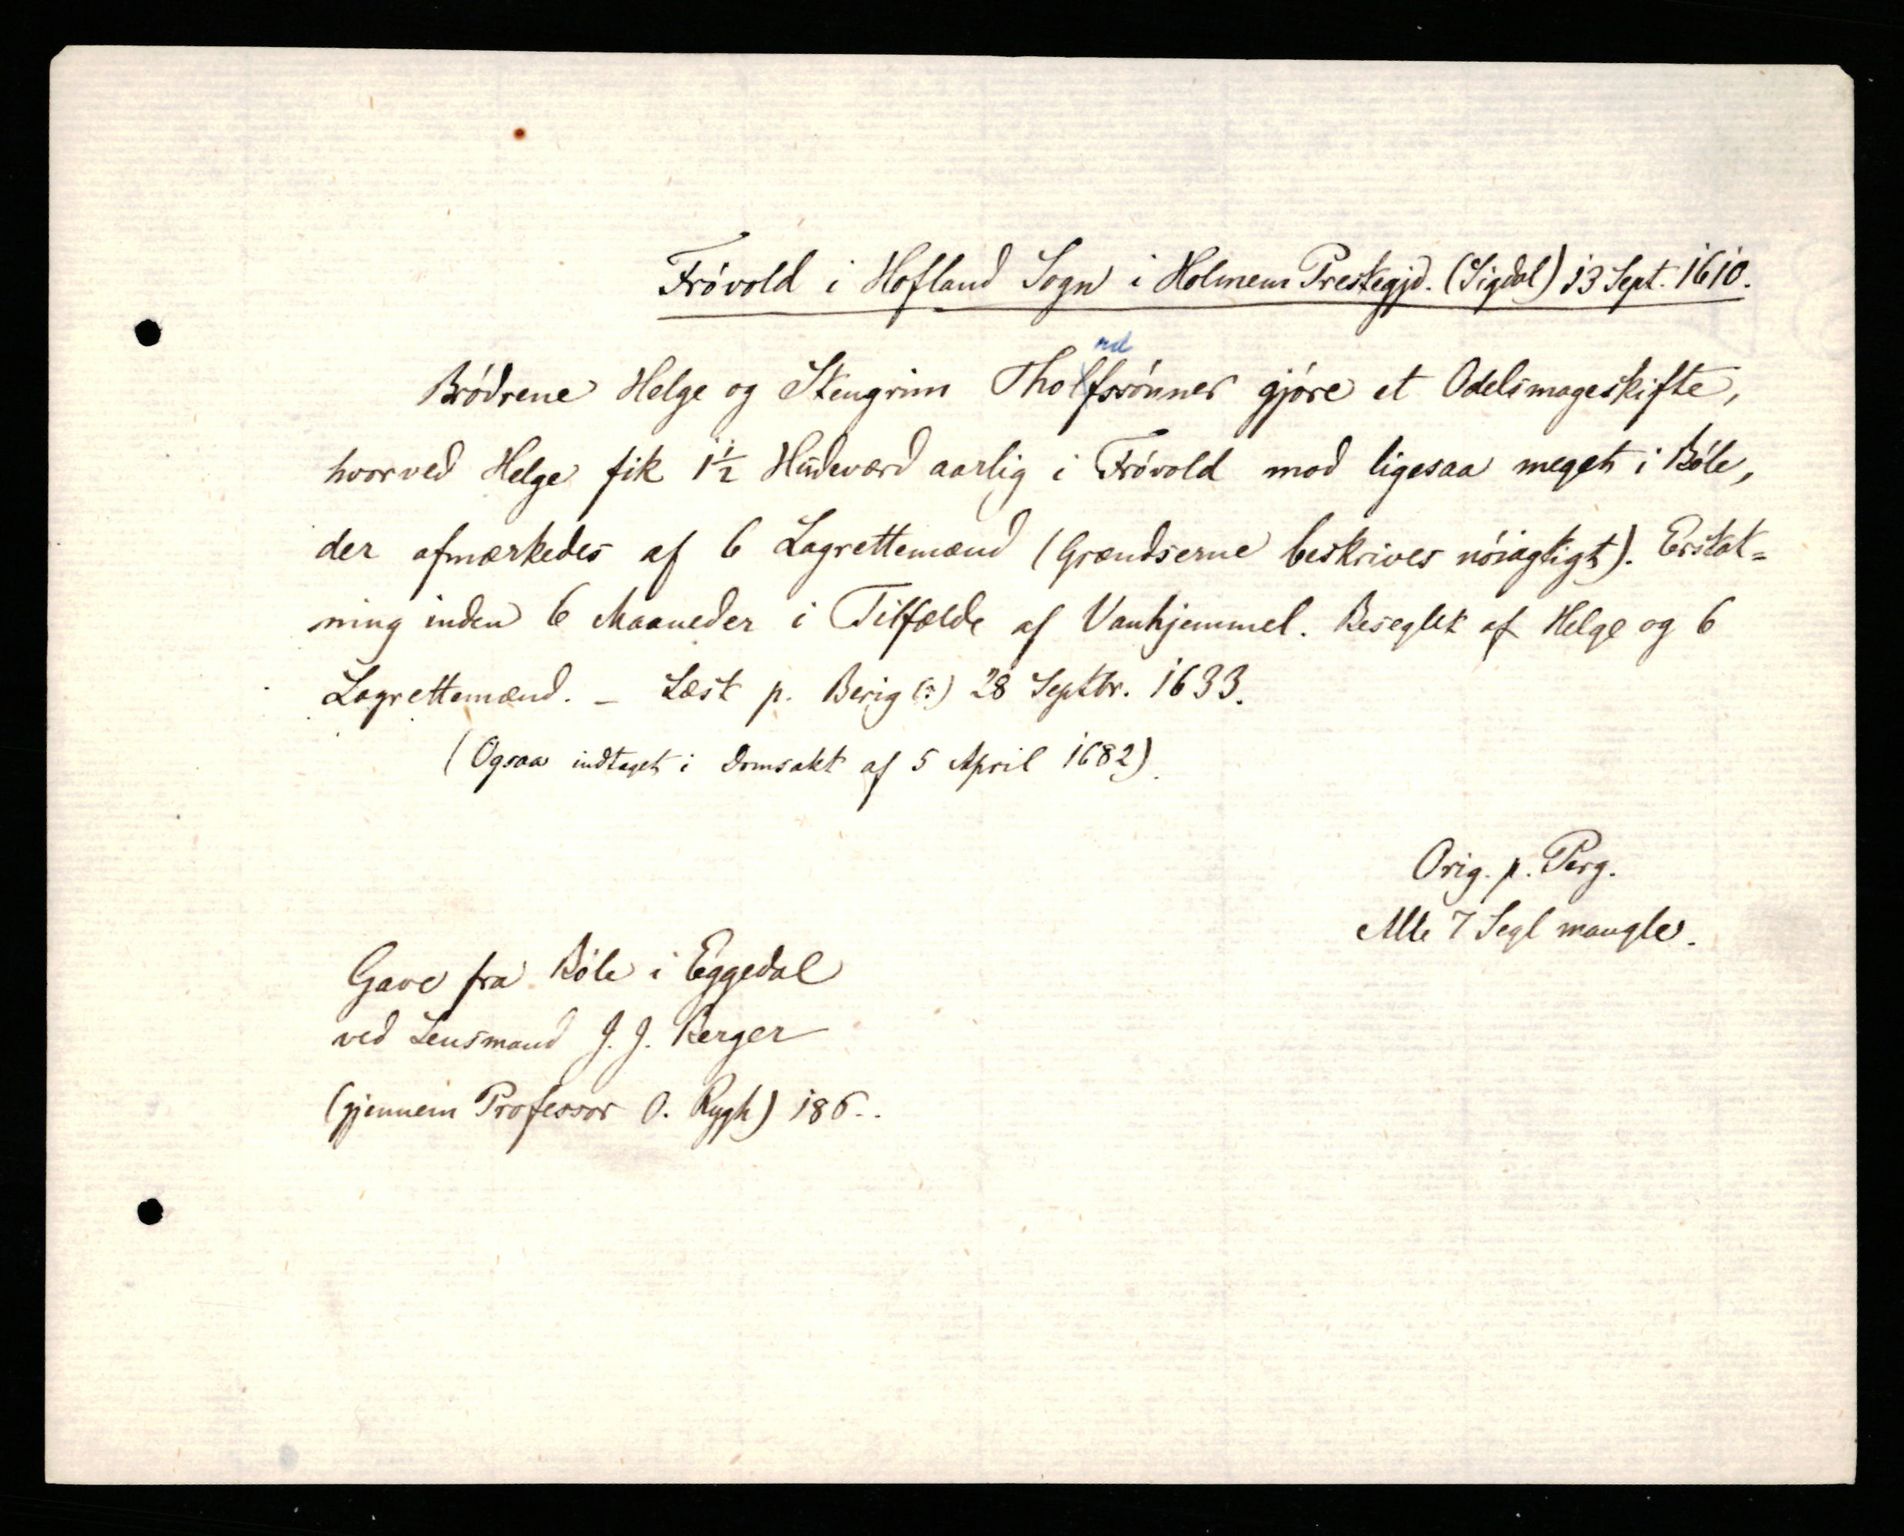 Frövold i Hofland Sogn i Holmem Prestegjd. (Sigdal) 13 Sept. 1610.
Brödrene Helge og Stengrim Tholfssönner gjöre et Odelsmageskifte,
nd
hvorved Helge fik 1½ Hudeværd aarlig i Frövold mod ligesaa meget i Böle,
der afmærkedes af 6 Lagrettemænd (Grændserne beskrives nöiagtigt). Erstat=
ning inden 6 Maaneder i Tilfælde af Vanhjemmel. Beseglet af Helge og 6
Lagrettemænd. – Læst p. Berig (?) 28 Septbr. 1633.
(Ogsaa indtaget i Domsakt af 5 April 1682).
Orig. p. Perg.
Alle 7 Segl mangle.
Gave fra Böle i Eggedal
ved Lensmand J. J. Berger
(gjennem Professor O. Rygh) 186..